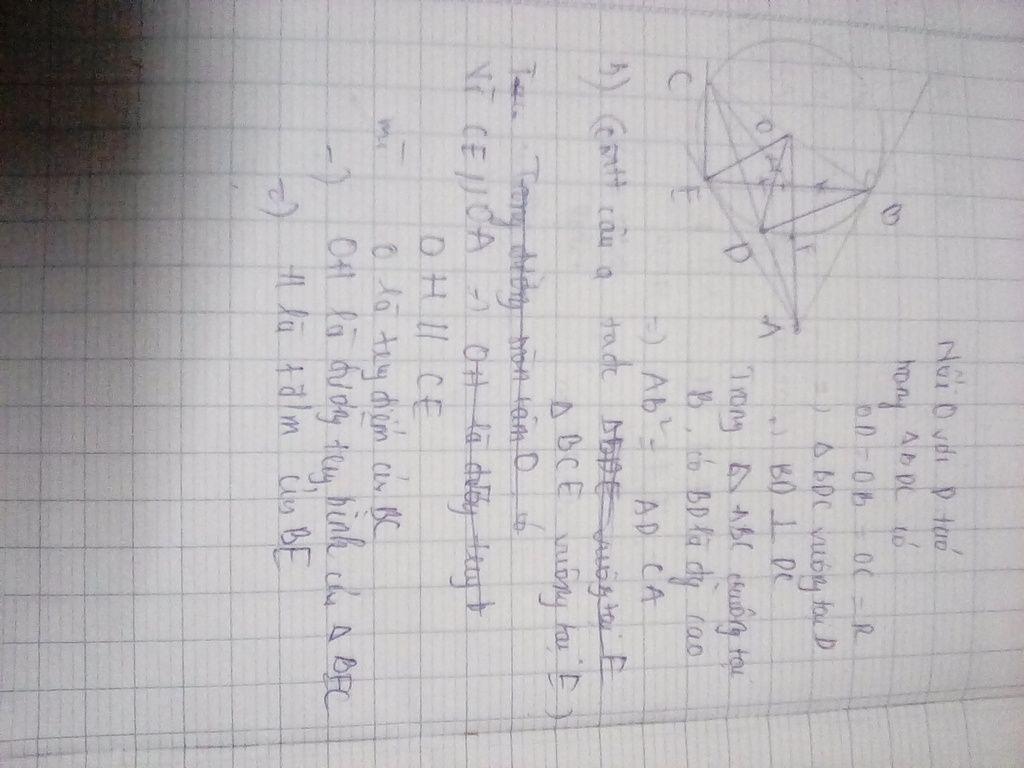 C
O
B
E
H
D
F
A
Nối O với D ta có
trong Δ BDC có
OD = OB = OC = R
=> Δ BDC vuông tại D
=> BD ⊥ DC
Trong Δ ABC vuông tại
B, có BD là đg cao
=> AB² = AD CA
b) (CMTT câu a ta đc Δ BDE vuông tại E
Δ BCE vuông tại E)
Trong đường tròn tâm O có
Vì CE // OA => OH là đường trug b
OH // CE
mà O là trug điểm của BC
=) OH là đường trug bình của Δ BEC
=) H là t điểm của BE